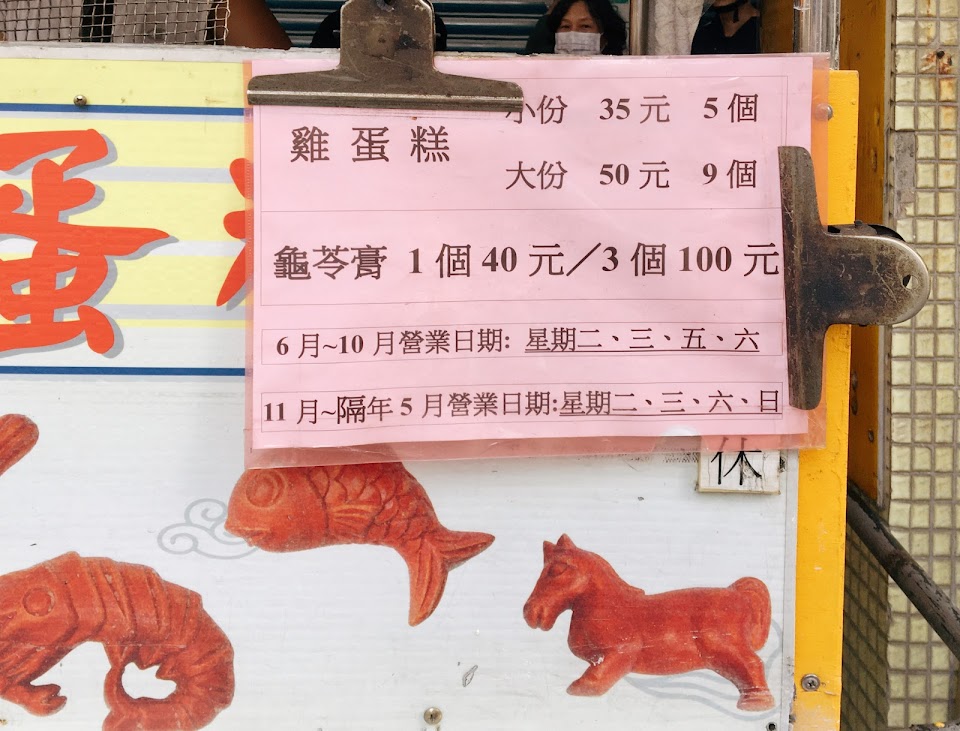 小份 35 元 5 個
雞蛋糕
大份 50 元 9 個
龜苓膏 1 個 40 元／3 個 100 元
6 月~10 月營業日期: 星期二、三、五、六
11 月~隔年 5 月營業日期:星期二、三、六、日
休
蛋